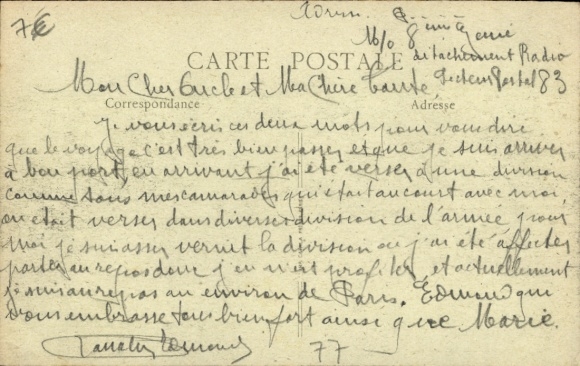 7€
Adresse. 8ème Génie
M/o détachement Radio
CARTE POSTALE
Secteur Postal 83
Mon Cher Oncle et Ma Chère Tante
Correspondance
Adresse
Je vous écris ces deux mots pour vous dire
que le voyage c'est très bien passer et que je suis arriver
à bon port, en arrivant j'ai été verser à une division
comme tous mes camarades qui était au court avec moi
on était verser dans diverses division de l'armée pour
moi je suis assez vernit la division ou j'ai été affecter
partez au repos donc j'en ai profiter, et actuellement
je suis au repos au environ de Paris. Edmond qui
vous embrasse tous bien fort ainsi que Marie.
Edmond
77